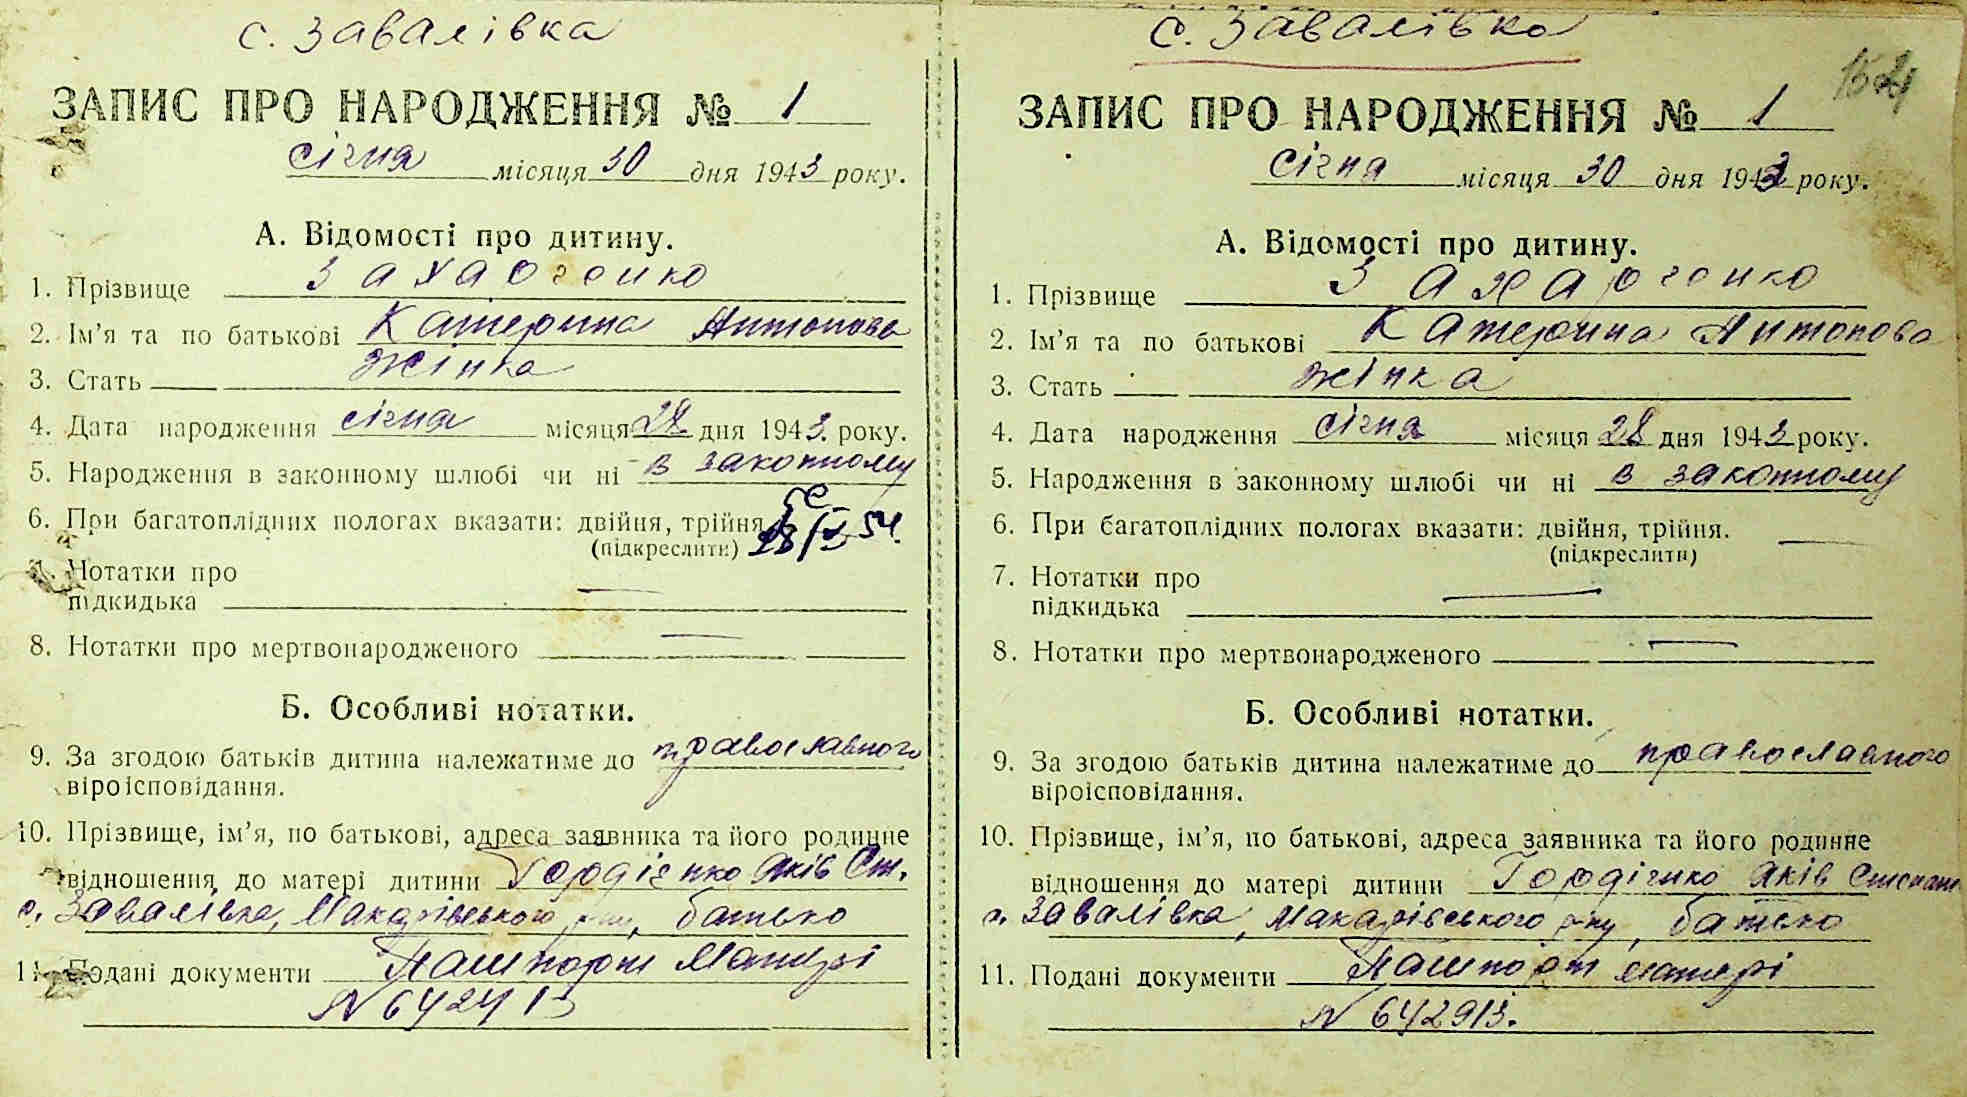 с. Завалівка
ЗАПИС ПРО НАРОДЖЕННЯ № 1
січня місяця 30 дня 1943 року.
А. Відомості про дитину.
1. Прізвище Захарченко
2. Ім'я та по батькові Катерина Антонова
3. Стать жінка
4. Дата народження січня місяця 28 дня 1943 року.
5. Народження в законному шлюбі чи ні в законному
6. При багатоплідних пологах вказати: двійня, трійня
(підкреслити)
7. Нотатки про
підкидька
8. Нотатки про мертвонародженого
Б. Особливі нотатки.
9. За згодою батьків дитина належатиме до православного
віроісповідання.
10. Прізвище, ім'я, по батькові, адреса заявника та його родинне
відношення до матері дитини Гордієнко Яків Ст.
с. Завалівка, Макарівського р-ну, батько
11. Подані документи Пашпорт матері
с. Завалівка
154
ЗАПИС ПРО НАРОДЖЕННЯ № 1
січня місяця 30 дня 1943 року.
А. Відомості про дитину.
1. Прізвище Захарченко
2. Ім'я та по батькові Катерина Антонова
3. Стать жінка
4. Дата народження січня місяця 28 дня 1943 року.
5. Народження в законному шлюбі чи ні в законному
6. При багатоплідних пологах вказати: двійня, трійня.
(підкреслити)
7. Нотатки про
підкидька
8. Нотатки про мертвонародженого
Б. Особливі нотатки.
9. За згодою батьків дитина належатиме до православного
віроісповідання.
10. Прізвище, ім'я, по батькові, адреса заявника та його родинне
відношення до матері дитини Гордієнко Яків Степан
с. Завалівка, Макарівського р-ну, батько
11. Подані документи Пашпорт матері
N 642913.